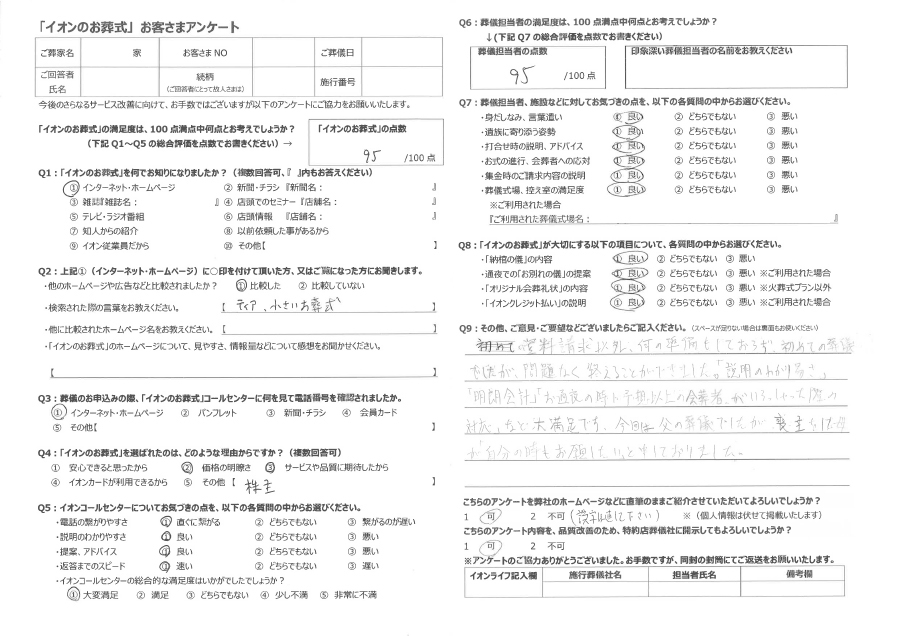 「イオンのお葬式」お客さまアンケート
ご葬家名 家 お客さまNO ご葬儀日
ご回答者氏名 続柄（ご回答者にとって故人さまは） 施行番号
今後のさらなるサービス改善に向けて、お手数ではございますが以下のアンケートにご協力をお願いいたします。
「イオンのお葬式」の満足度は、100点満点中何点とお考えでしょうか？
（下記Q1～Q5の総合評価を点数でお書きください）→
「イオンのお葬式」の点数
95 /100点
Q1：「イオンのお葬式」を何でお知りになりましたか？（複数回答可、『 』内もお答えください）
① インターネット・ホームページ ② 新聞・チラシ『新聞名： 』
③ 雑誌『雑誌名： 』 ④ 店頭でのセミナー『店舗名： 』
⑤ テレビ・ラジオ番組 ⑥ 店頭情報 『店舗名： 』
⑦ 知人からの紹介 ⑧ 以前依頼した事があるから
⑨ イオン従業員だから ⑩ その他【 】
Q2：上記①（インターネット・ホームページ）に〇印を付けて頂いた方、又はご覧になった方にお聞きします。
・他のホームページや広告などと比較されましたか？ ① 比較した ② 比較していない
・検索された際の言葉をお教えください。 【 ティア、小さいお葬式 】
・他に比較されたホームページ名をお教えください。【 】
・「イオンのお葬式」のホームページについて、見やすさ、情報量などについて感想をお聞かせください。
【 】
Q3：葬儀のお申込みの際、「イオンのお葬式」コールセンターに何を見て電話番号を確認されましたか。
① インターネット・ホームページ ② パンフレット ③ 新聞・チラシ ④ 会員カード
⑤ その他【 】
Q4：「イオンのお葬式」を選ばれたのは、どのような理由からですか？（複数回答可）
① 安心できると思ったから ② 価格の明瞭さ ③ サービスや品質に期待したから
④ イオンカードが利用できるから ⑤ その他【 株主 】
Q5：イオンコールセンターについてお気づきの点を、以下の各質問の中からお選びください。
・電話の繋がりやすさ ① 直ぐに繋がる ② どちらでもない ③ 繋がるのが遅い
・説明のわかりやすさ ① 良い ② どちらでもない ③ 悪い
・提案、アドバイス ① 良い ② どちらでもない ③ 悪い
・返答までのスピード ① 速い ② どちらでもない ③ 遅い
・イオンコールセンターの総合的な満足度はいかがでしたでしょうか？
① 大変満足 ② 満足 ③ どちらでもない ④ 少し不満 ⑤ 非常に不満
Q6：葬儀担当者の満足度は、100点満点中何点とお考えでしょうか？
↓（下記Q7の総合評価を点数でお書きください）
葬儀担当者の点数 印象深い葬儀担当者の名前をお教えください
95 /100点
Q7：葬儀担当者、施設などに対してお気づきの点を、以下の各質問の中からお選びください。
・身だしなみ、言葉遣い ① 良い ② どちらでもない ③ 悪い
・遺族に寄り添う姿勢 ① 良い ② どちらでもない ③ 悪い
・打合せ時の説明、アドバイス ① 良い ② どちらでもない ③ 悪い
・お式の進行、会葬者への応対 ① 良い ② どちらでもない ③ 悪い
・集金時のご請求内容の説明 ① 良い ② どちらでもない ③ 悪い
・葬儀式場、控え室の満足度 ① 良い ② どちらでもない ③ 悪い
※ご利用された場合
『ご利用された葬儀式場名： 』
Q8：「イオンのお葬式」が大切にする以下の項目について、各質問の中からお選びください。
・「納棺の儀」の内容 ① 良い ② どちらでもない ③ 悪い
・通夜での「お別れの儀」の提案 ① 良い ② どちらでもない ③ 悪い ※ご利用された場合
・「オリジナル会葬礼状」の内容 ① 良い ② どちらでもない ③ 悪い ※火葬式プラン以外
・「イオンクレジット払い」の説明 ① 良い ② どちらでもない ③ 悪い ※ご利用された場合
Q9：その他、ご意見・ご要望などございましたらご記入ください。（スペースが足りない場合は裏面もお使いください）
初めて 資料請求以外、何の準備もしておらず、初めての葬儀
でしたが、問題なく終えることができました。「説明のわかり易さ」
「明朗会計」「お通夜の時に予想以上の会葬者がいらっしゃった際の
対応」など大満足です。今回は父の葬儀でしたが、喪主をした母
が自分の時もお願いしたいと申しておりました。
こちらのアンケートを弊社のホームページなどに直筆のままご紹介させていただいてよろしいでしょうか？
1 可 2 不可（誤字は直して下さい） ※（個人情報は伏せて掲載いたします）
こちらのアンケート内容を、品質改善のため、特約店葬儀社に開示してもよろしいでしょうか？
1 可 2 不可
※アンケートのご協力ありがとうございました。お手数ですが、同封の封筒にてご返送をお願いいたします。
イオンライフ記入欄 施行葬儀社名 担当者氏名 備考欄